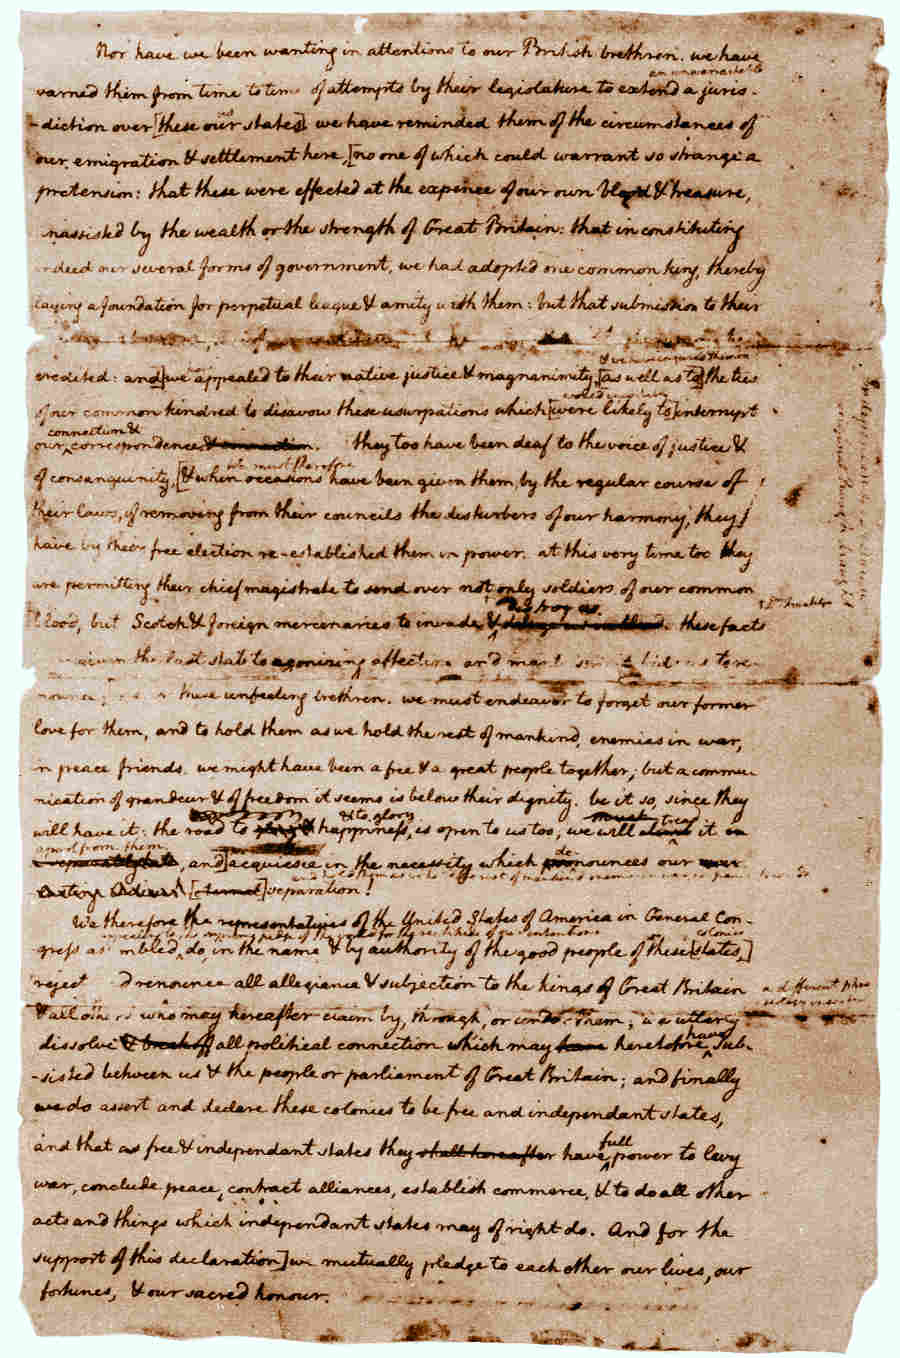 Nor have we been wanting in attentions to our British brethren. we have
an unwarrantable
warned them from time to time of attempts by their legislature to extend a juris-
us
-diction over [these our states] we have reminded them of the circumstances of
our emigration & settlement here, [no one of which could warrant so strange a
pretension: that these were effected at the expence of our own blood & treasure,
unassisted by the wealth or the strength of Great Britain: that in constituting
indeed our several forms of government, we had adopted one common king, thereby
laying a foundation for perpetual league & amity with them: but that submission to their
& we have conjured them by
credited: and] we appealed to their native justice & magnanimity, [as well as to] the ties
would inevitably
of our common kindred to disavow these usurpations which [were likely to] interrupt
connection &
our correspondence & connection. they too have been deaf to the voice of justice &
we must therefore
of consanguinity, [& when occasions have been given them, by the regular course of
their laws, of removing from their councils the disturbers of our harmony, they
have by their free election re-established them in power. at this very time too they
are permitting their chief magistrate to send over not only soldiers of our common
destroy us
blood, but Scotch & foreign mercenaries to invade & these facts
have given the last stab to agonizing affection and manly bids us to re-
nounce these unfeeling brethren. we must endeavor to forget our former
love for them, and to hold them as we hold the rest of mankind, enemies in war,
in peace friends. we might have been a free & a great people together; but a commu-
nication of grandeur & of freedom it seems is below their dignity. be it so, since they
& to glory
will have it: the road to glory & happiness, is open to us too, we will climb it in
must tread
apart from them
a separate state, and] acquiesce in the necessity which denounces our ever-
lasting Adieu! [eternal] separation!
We therefore the representatives of the United States of America in General Con-
appealing to the supreme judge of the world for the rectitude of our intentions
colonies
gress assembled, do, in the name & by authority of the good people of these [states,]
reject and renounce all allegiance & subjection to the kings of Great Britain
& all others who may hereafter claim by, through, or under them; we utterly
have
dissolve & break off all political connection which may have heretofore sub-
-sisted between us & the people or parliament of Great Britain; and finally
we do assert and declare these colonies to be free and independant states,
full
and that as free & independant states they shall hereafter have power to levy
war, conclude peace, contract alliances, establish commerce, & to do all other
acts and things which independant states may of right do. And for the
support of this declaration] we mutually pledge to each other our lives, our
fortunes, & our sacred honour.
Dr. Franklin
a different phra